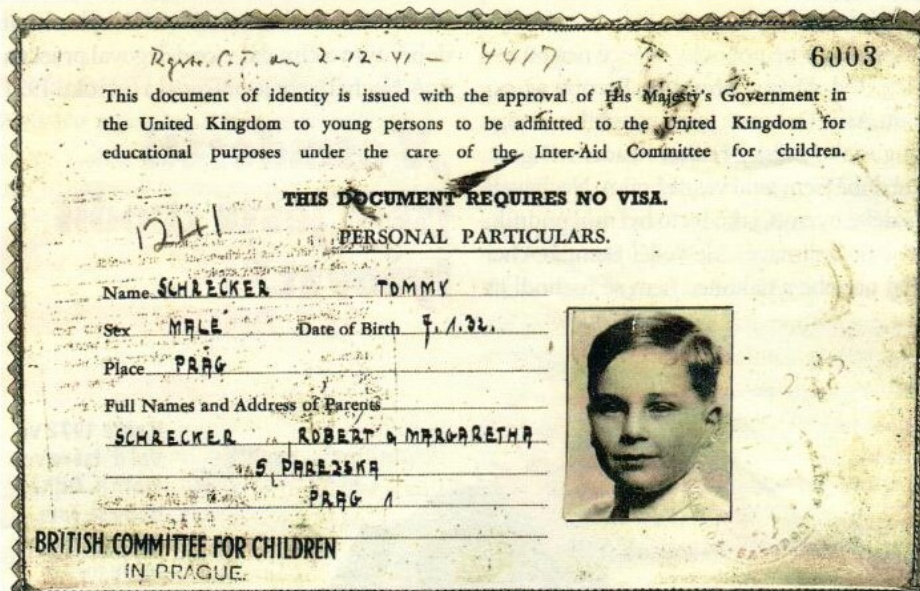 4417 6003
This document of identity is issued with the approval of His Majesty's Government in
the United Kingdom to young persons to be admitted to the United Kingdom for
educational purposes under the care of the Inter-Aid Committee for children.
THIS DOCUMENT REQUIRES NO VISA.
1241
PERSONAL PARTICULARS.
Name SCHRECKER TOMMY
Sex MALE Date of Birth 7.1.32.
Place PRAG
Full Names and Address of Parents
SCHRECKER ROBERT & MARGARETHA
5, PAREZSKA
PRAG 1
BRITISH COMMITTEE FOR CHILDREN
IN PRAGUE.